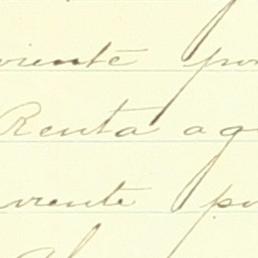 viente po
Renta ag
viente po